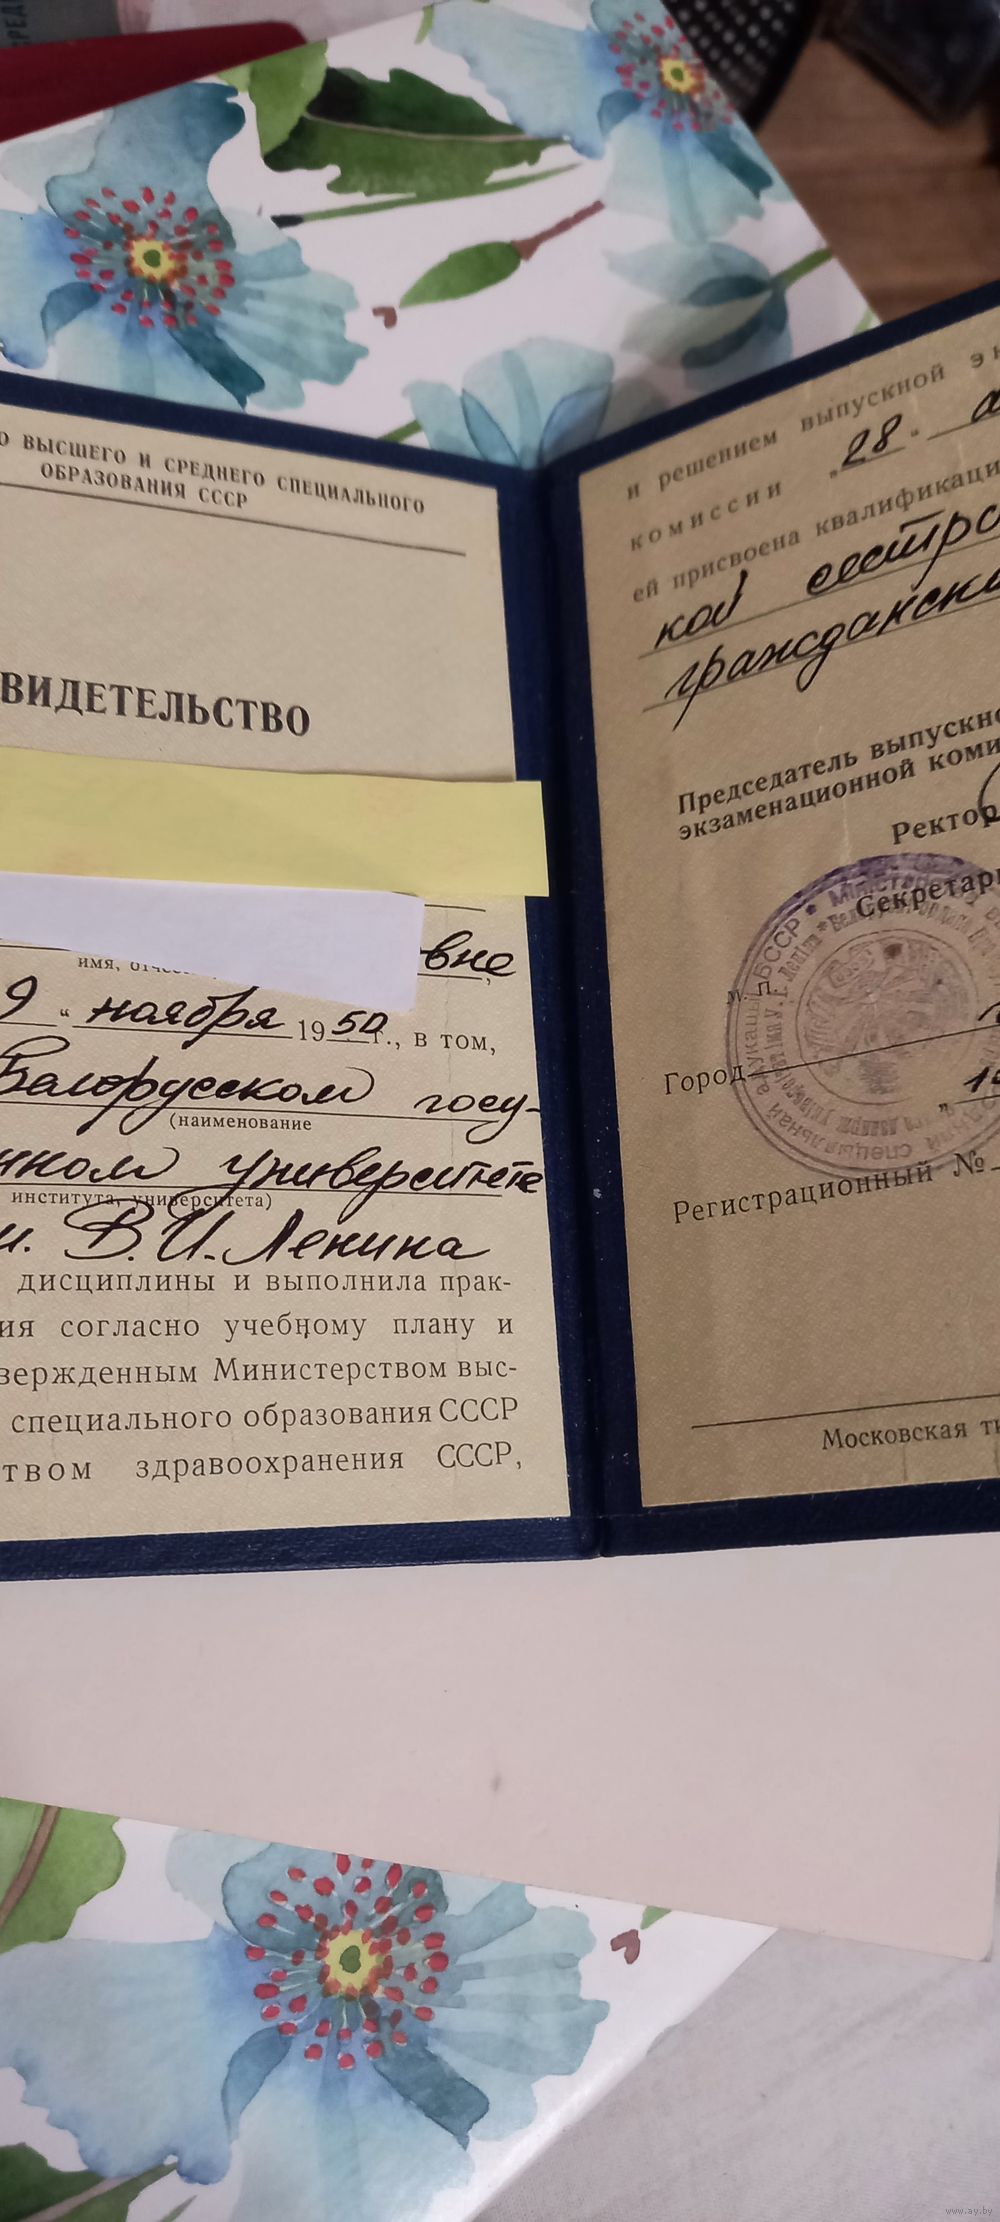 О ВЫСШЕГО И СРЕДНЕГО СПЕЦИАЛЬНОГО
ОБРАЗОВАНИЯ СССР
ВИДЕТЕЛЬСТВО
имя,
вне,
9 " ноября 1950 г., в том,
Белорусском госу-
(наименование
нном университете
института, университета)
и. В.И. Ленина
дисциплины и выполнила прак-
ия согласно учебному плану и
вержденным Министерством выс-
специального образования СССР
твом здравоохранения СССР,
и решением выпускной эк
комиссии „28" а
ей присвоена квалификаци
кой сестры
граждански
Председатель выпускно
экзаменационной коми
Ректор
Секретарь
М. П.
Город
„ 19
Регистрационный №
Московская ти
www.ay.by